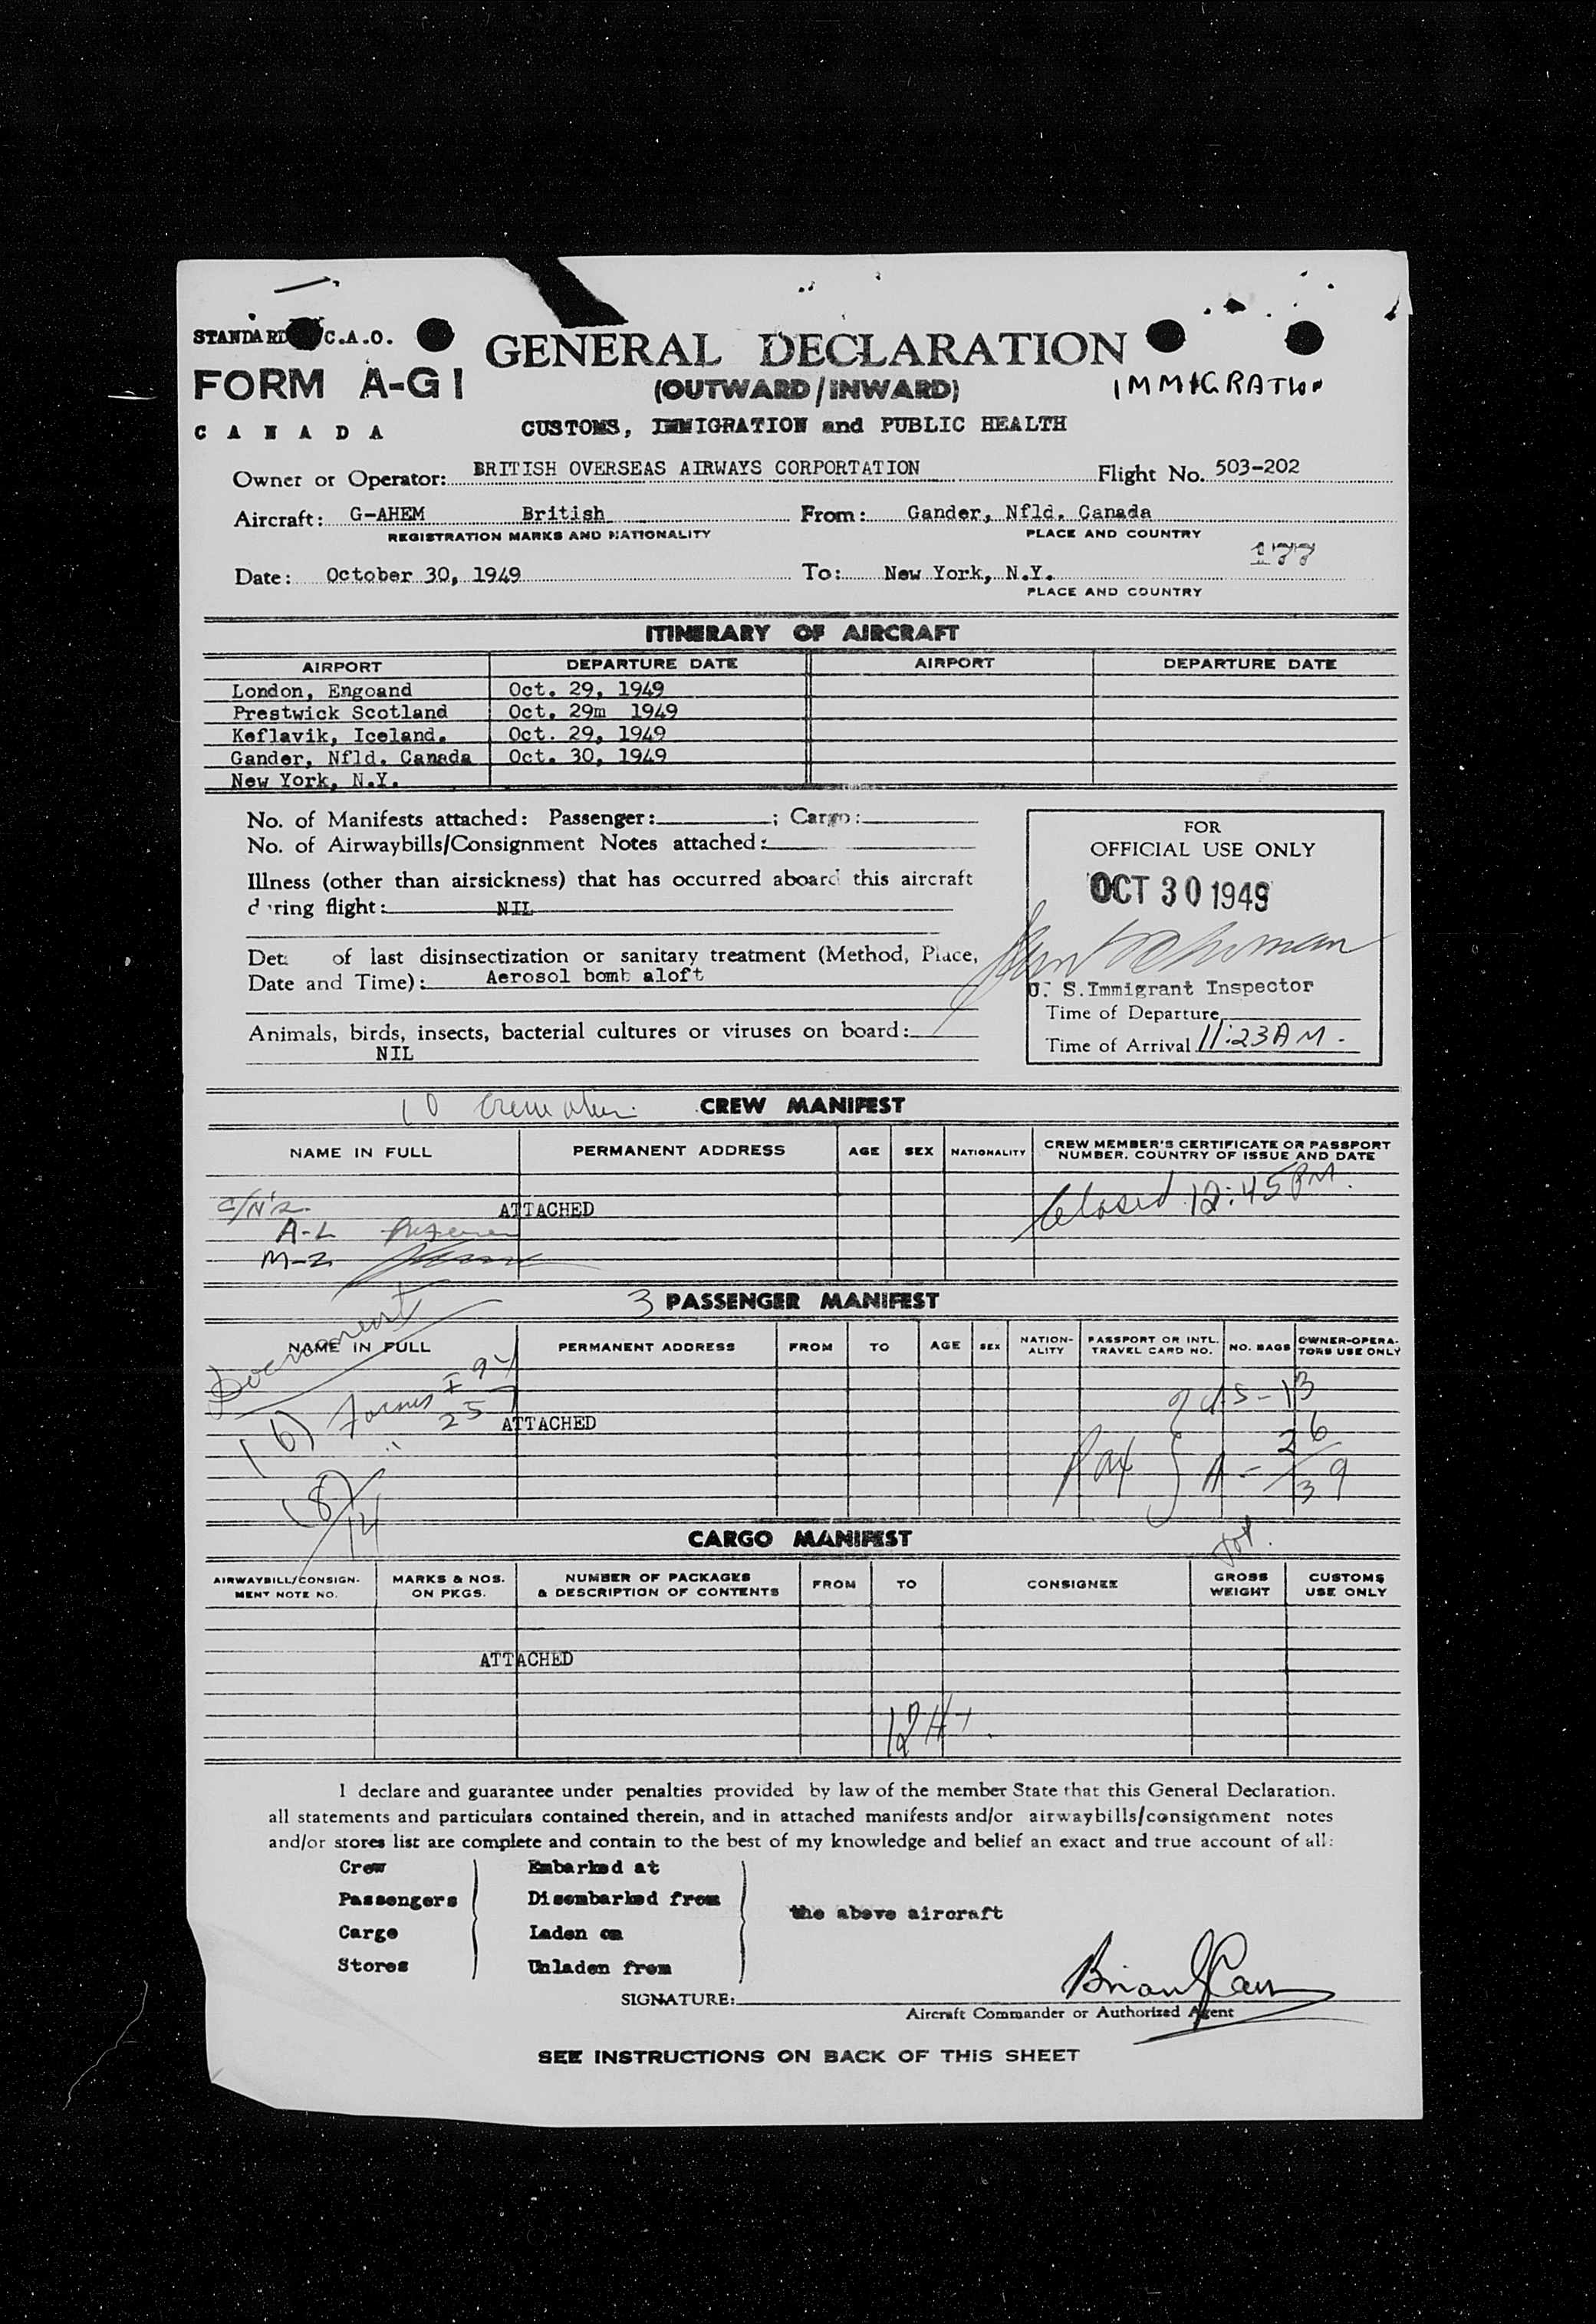 STANDARD C.A.O.
GENERAL DECLARATION
FORM A-G1
(OUTWARD/INWARD)
IMMIGRATION
CANADA
CUSTOMS, IMMIGRATION and PUBLIC HEALTH
Owner or Operator: BRITISH OVERSEAS AIRWAYS CORPORTATION Flight No. 503-202
Aircraft: G-AHEM British From: Gander, Nfld. Canada
REGISTRATION MARKS AND NATIONALITY PLACE AND COUNTRY
177
Date: October 30, 1949 To: New York, N.Y.
PLACE AND COUNTRY
ITINERARY OF AIRCRAFT
AIRPORT DEPARTURE DATE AIRPORT DEPARTURE DATE
London, Engoand Oct. 29, 1949
Prestwick Scotland Oct. 29m 1949
Keflavik, Iceland. Oct. 29, 1949
Gander, Nfld. Canada Oct. 30, 1949
New York, N.Y.
No. of Manifests attached: Passenger: ; Cargo:
No. of Airwaybills/Consignment Notes attached:
Illness (other than airsickness) that has occurred aboard this aircraft
during flight: NIL
Det of last disinsectization or sanitary treatment (Method, Place,
Date and Time): Aerosol bomb aloft
Animals, birds, insects, bacterial cultures or viruses on board:
NIL
FOR
OFFICIAL USE ONLY
OCT 30 1949
U. S.Immigrant Inspector
Time of Departure
Time of Arrival 11:23 AM.
10 CREW MANIFEST
NAME IN FULL PERMANENT ADDRESS AGE SEX NATIONALITY CREW MEMBER'S CERTIFICATE OR PASSPORT
NUMBER. COUNTRY OF ISSUE AND DATE
Closed 12:45 PM.
ATTACHED
A-L
M-Z
3 PASSENGER MANIFEST
Document
NAME IN FULL PERMANENT ADDRESS FROM TO AGE SEX NATION-
ALITY PASSPORT OR INTL.
TRAVEL CARD NO. NO. BAGS OWNER-OPERA-
TORS USE ONLY
(6) Forms I 94
25
ATTACHED
US-13
Pax { A - 26
39
(8)
14
CARGO MANIFEST
Tot.
AIRWAYBILL/CONSIGN-
MENT NOTE NO. MARKS & NOS.
ON PKGS. NUMBER OF PACKAGES
& DESCRIPTION OF CONTENTS FROM TO CONSIGNEE GROSS
WEIGHT CUSTOMS
USE ONLY
ATTACHED
I declare and guarantee under penalties provided by law of the member State that this General Declaration.
all statements and particulars contained therein, and in attached manifests and/or airwaybills/consignment notes
and/or stores list are complete and contain to the best of my knowledge and belief an exact and true account of all:
Crew Embarked at
Passengers Disembarked from
the above aircraft
Cargo Laden on
Stores Unladen from
SIGNATURE:
Aircraft Commander or Authorized Agent
SEE INSTRUCTIONS ON BACK OF THIS SHEET